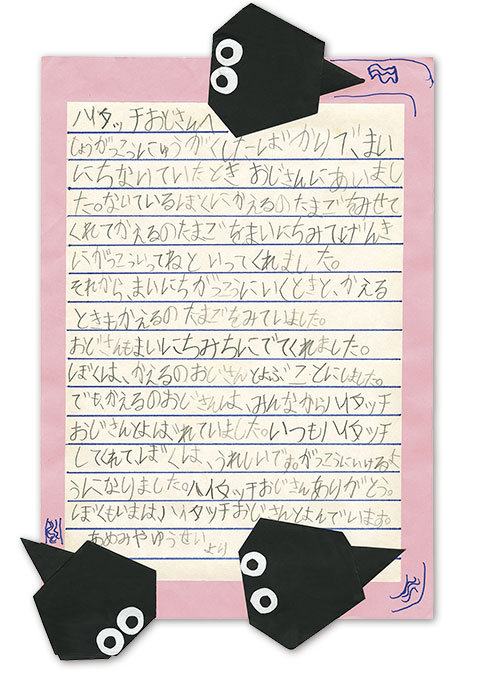 ハイタッチおじさんへ
しょうがっこうににゅうがくしたばかりで、まい
にちないていたとき おじさんにあいまし
た。ないているぼくにかえるのたまごをみせて
くれてかえるのたまごをまいにちみてげんき
にがっこういってねといってくれました。
それから、まいにちがっこうにいくときと、かえる
ときもかえるのたまごをみていました。
おじさんもまいにちみちにでてくれました。
ぼくは、かえるのおじさんとよぶことにしました。
でも、かえるのおじさんは、みんなからハイタッチ
おじさんとよばれていました。いつもハイタッチ
してくれて、ぼくは、うれしいです。がっこうにいけるよ
うになりました。ハイタッチおじさんありがとう。
ぼくもいまは、ハイタッチおじさんとよんでいます。
あめみやゆうせい
より